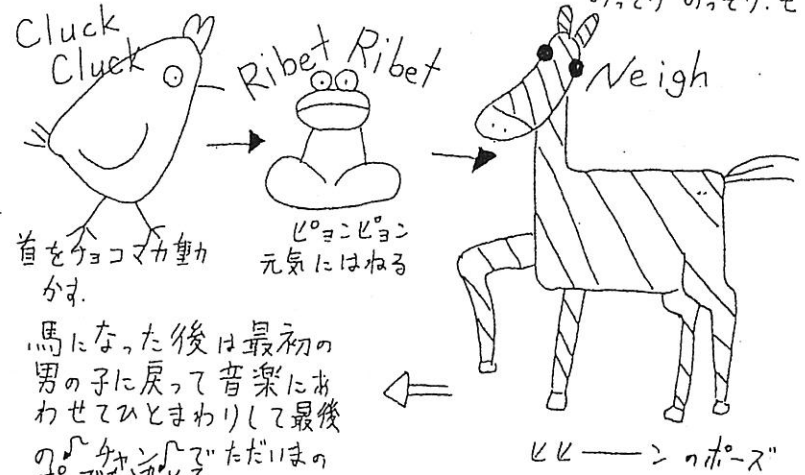 のっそり のっそり.
Cluck
Cluck
Ribet Ribet
Neigh
首をチョコマカ動
かす.
ピョンピョン
元気にはねる
馬になった後は最初の
男の子に戻って音楽にあ
わせてひとまわりして最後
の♪チャン♪でただいまの
ヒヒーーン のポーズ